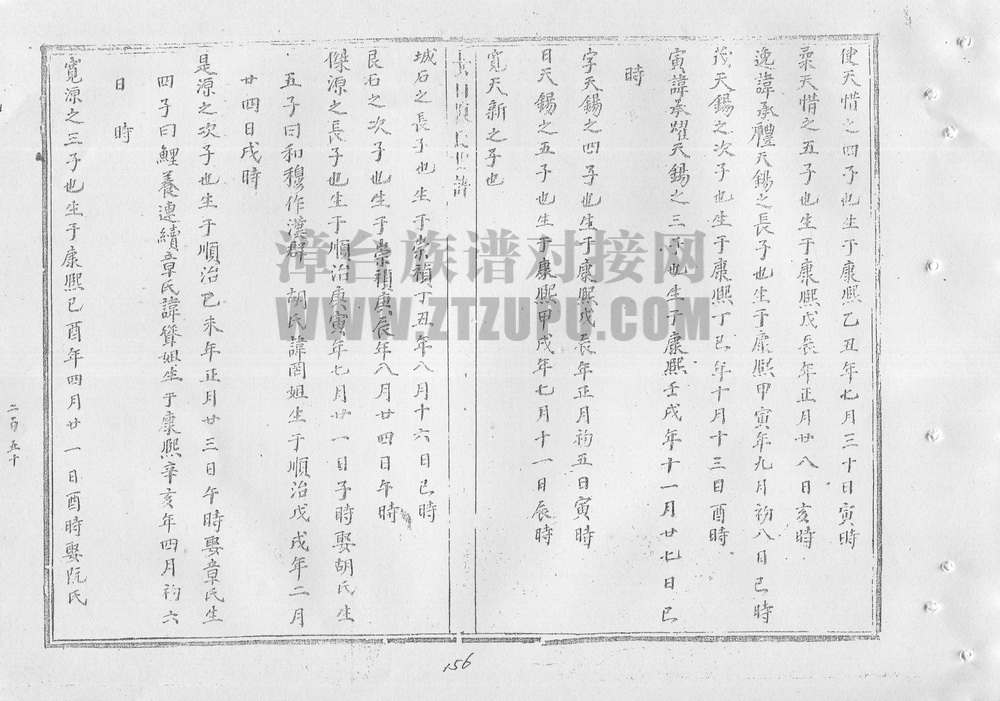 使天惜之四子也生于康熙乙丑年七月三十日寅時
菜天惜之五子也生于康熙戊辰年正月廿八日亥時
逸諱承體天錫之長子也生于康熙甲寅年九月初八日巳時
茂天錫之次子也生于康熙丁巳年十月十三日酉時
寅諱承躍天錫之三子也生于康熙壬戌年十一月廿七日巳
時
字天錫之四子也生于康熙戊辰年正月初五日寅時
日天錫之五子也生于康熙甲戌年七月十一日辰時
寬天新之子也
譜
城石之長子也生于崇禎丁丑年八月十六日巳時
艮石之次子也生于崇禎庚辰年八月廿四日午時
傑源之長子也生于順治庚寅年七月廿一日子時娶胡氏生
五子曰和穆作漢群胡氏諱罔姐生于順治戊戌年二月
廿四日戌時
是源之次子也生于順治己未年正月廿三日午時娶章氏生
四子曰鯉養連續章氏諱聳姐生于康熙辛亥年四月初六
日時
寬源之三子也生于康熙己酉年四月廿一日酉時娶阮氏
二百五十
156
漳台族谱对接网
WWW.ZTZUPU.COM